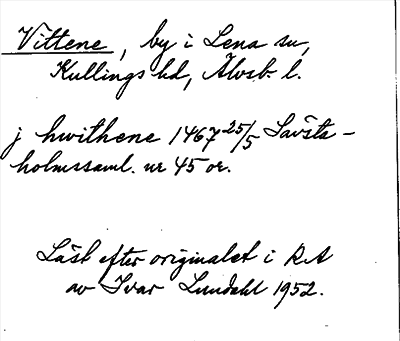 Vittene, by i Lena sn,
Kullings hd, Älvsb. l.
j hwithene 1467 25/5 Sävsta-
holmssaml. nr 45 or.
Läst efter originalet i RA
av Ivar Lundahl 1952.